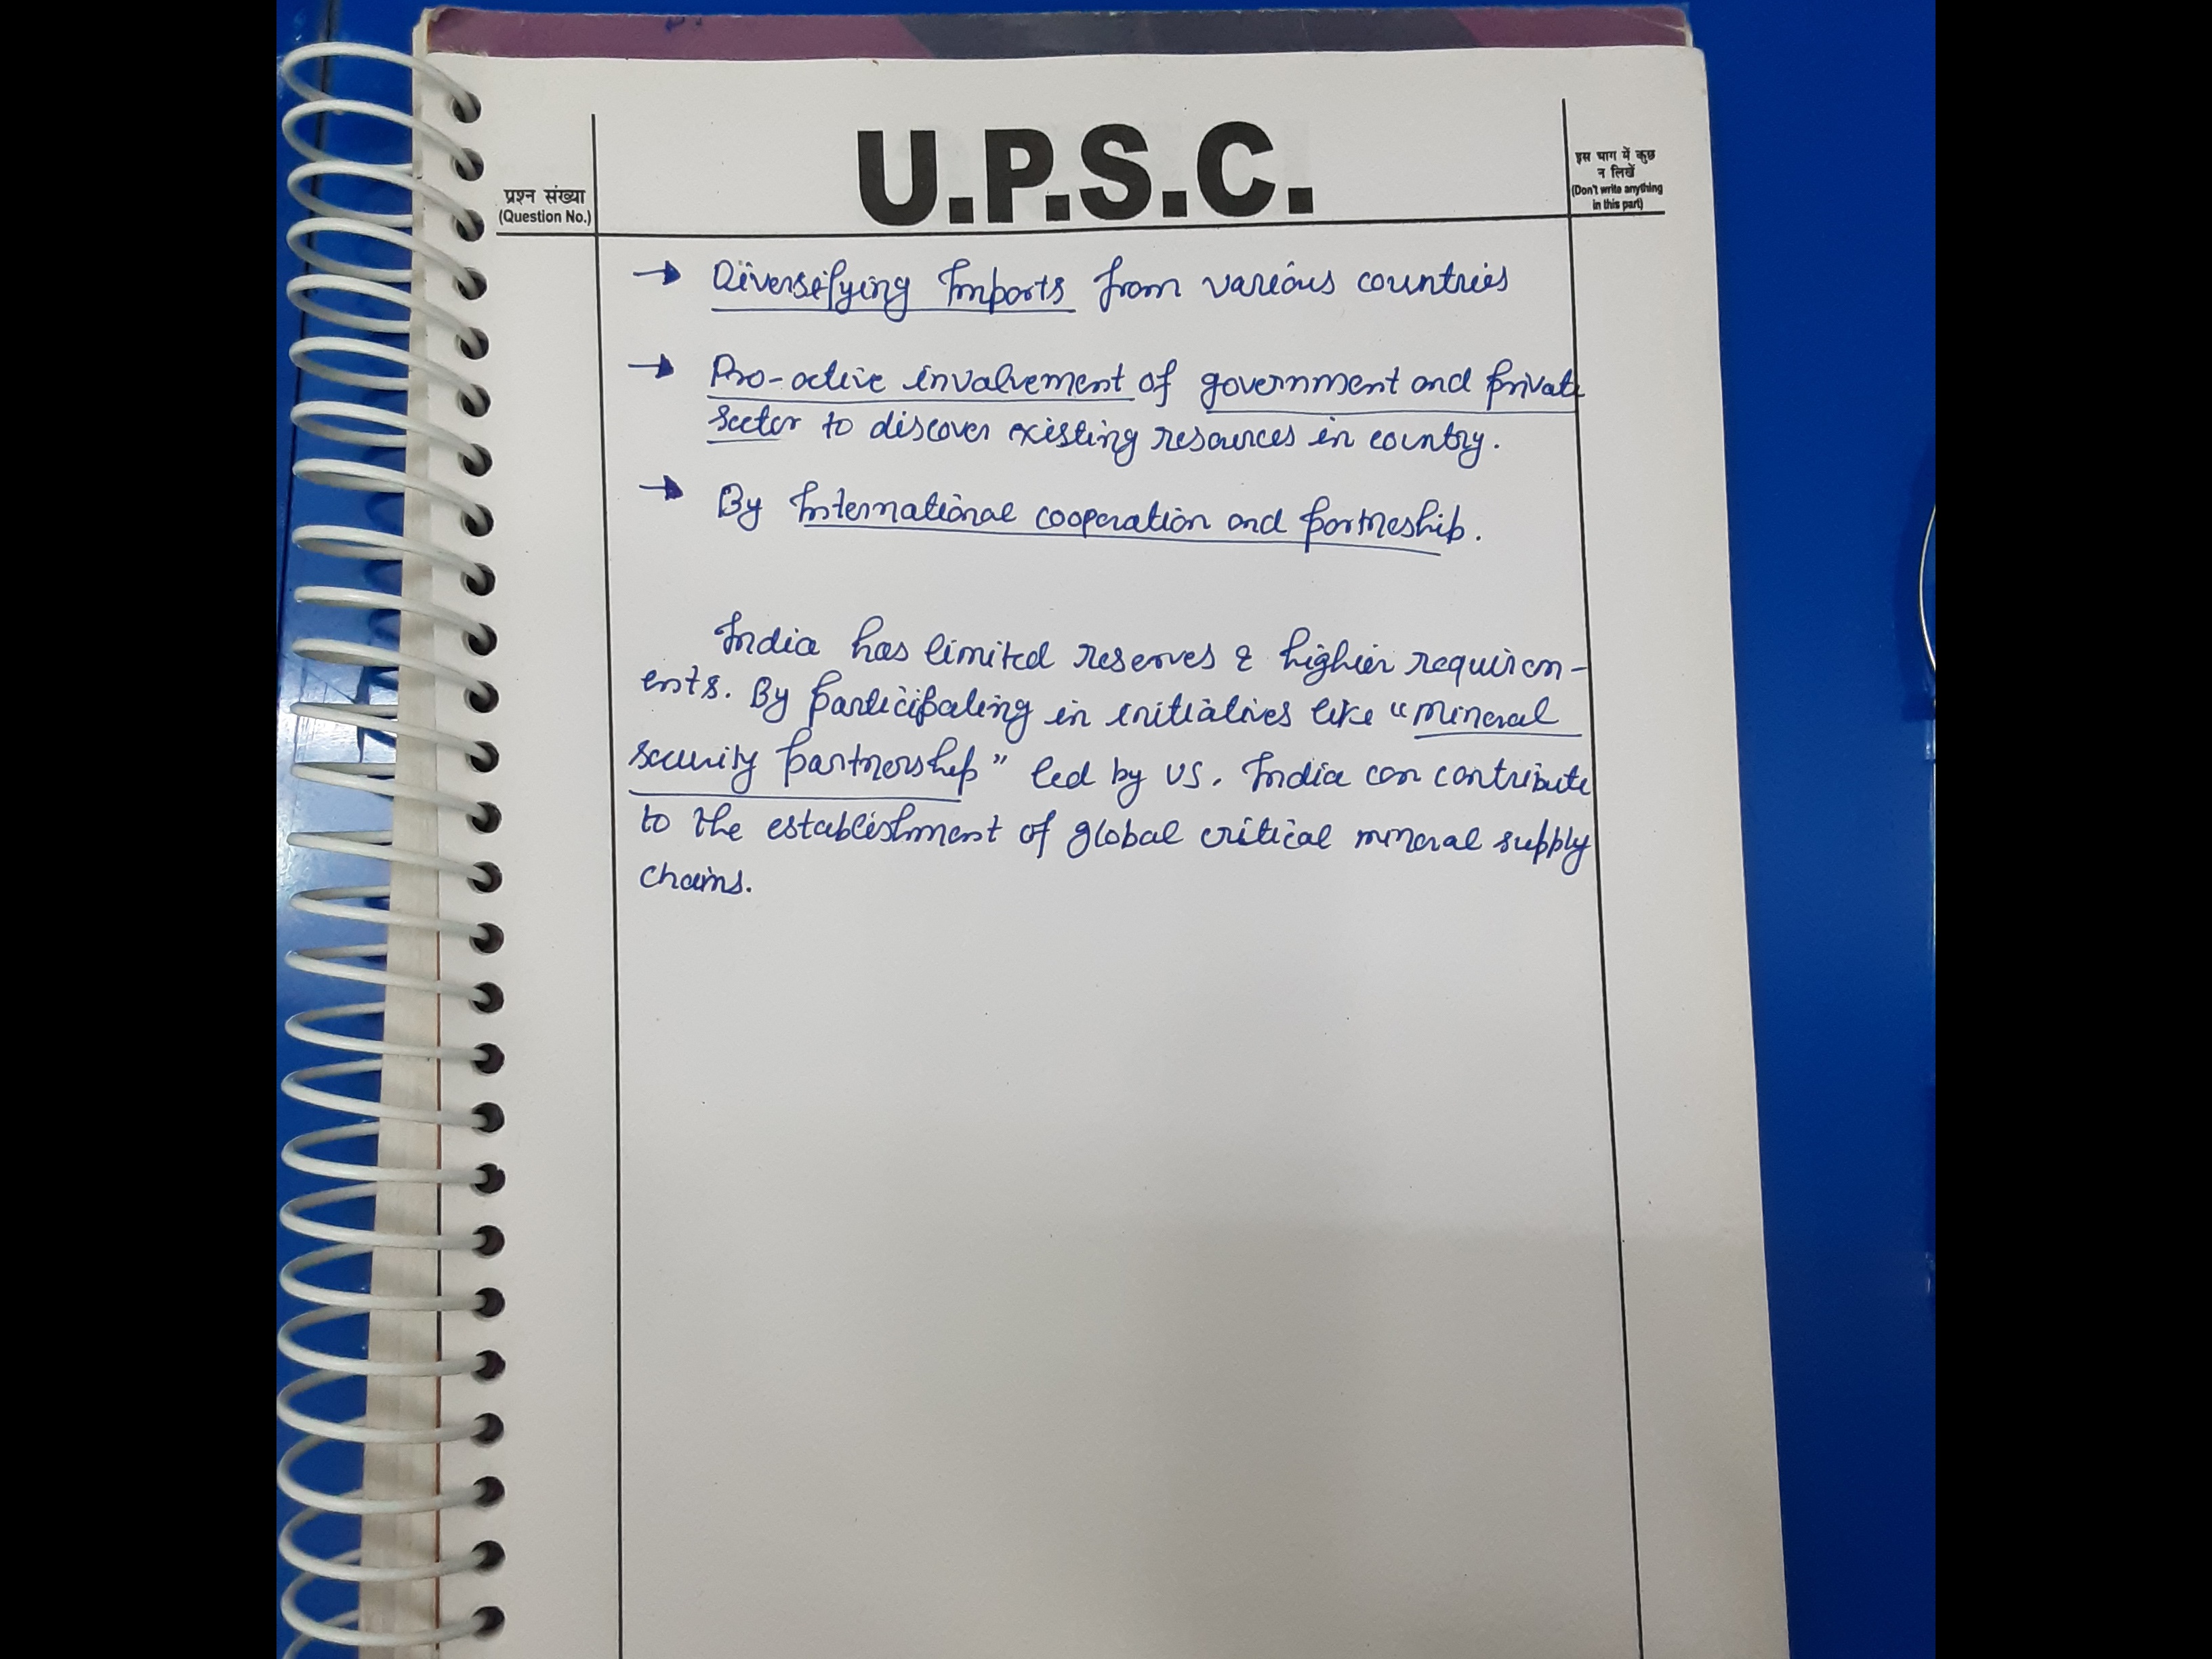 U.P.S.C.
प्रश्न संख्या
(Question No.)
इस भाग में कुछ
न लिखें
(Don't write anything
in this part)
→ Diversifying Imports from various countries
→ Pro-active involvement of government and private
sector to discover existing resources in country.
→ By International cooperation and partneship.
India has limited reserves & higher requirem-
ents. By participating in initiatives like "mineral
security partnership" led by US. India can contribute
to the establishment of global critical mineral supply
chains.